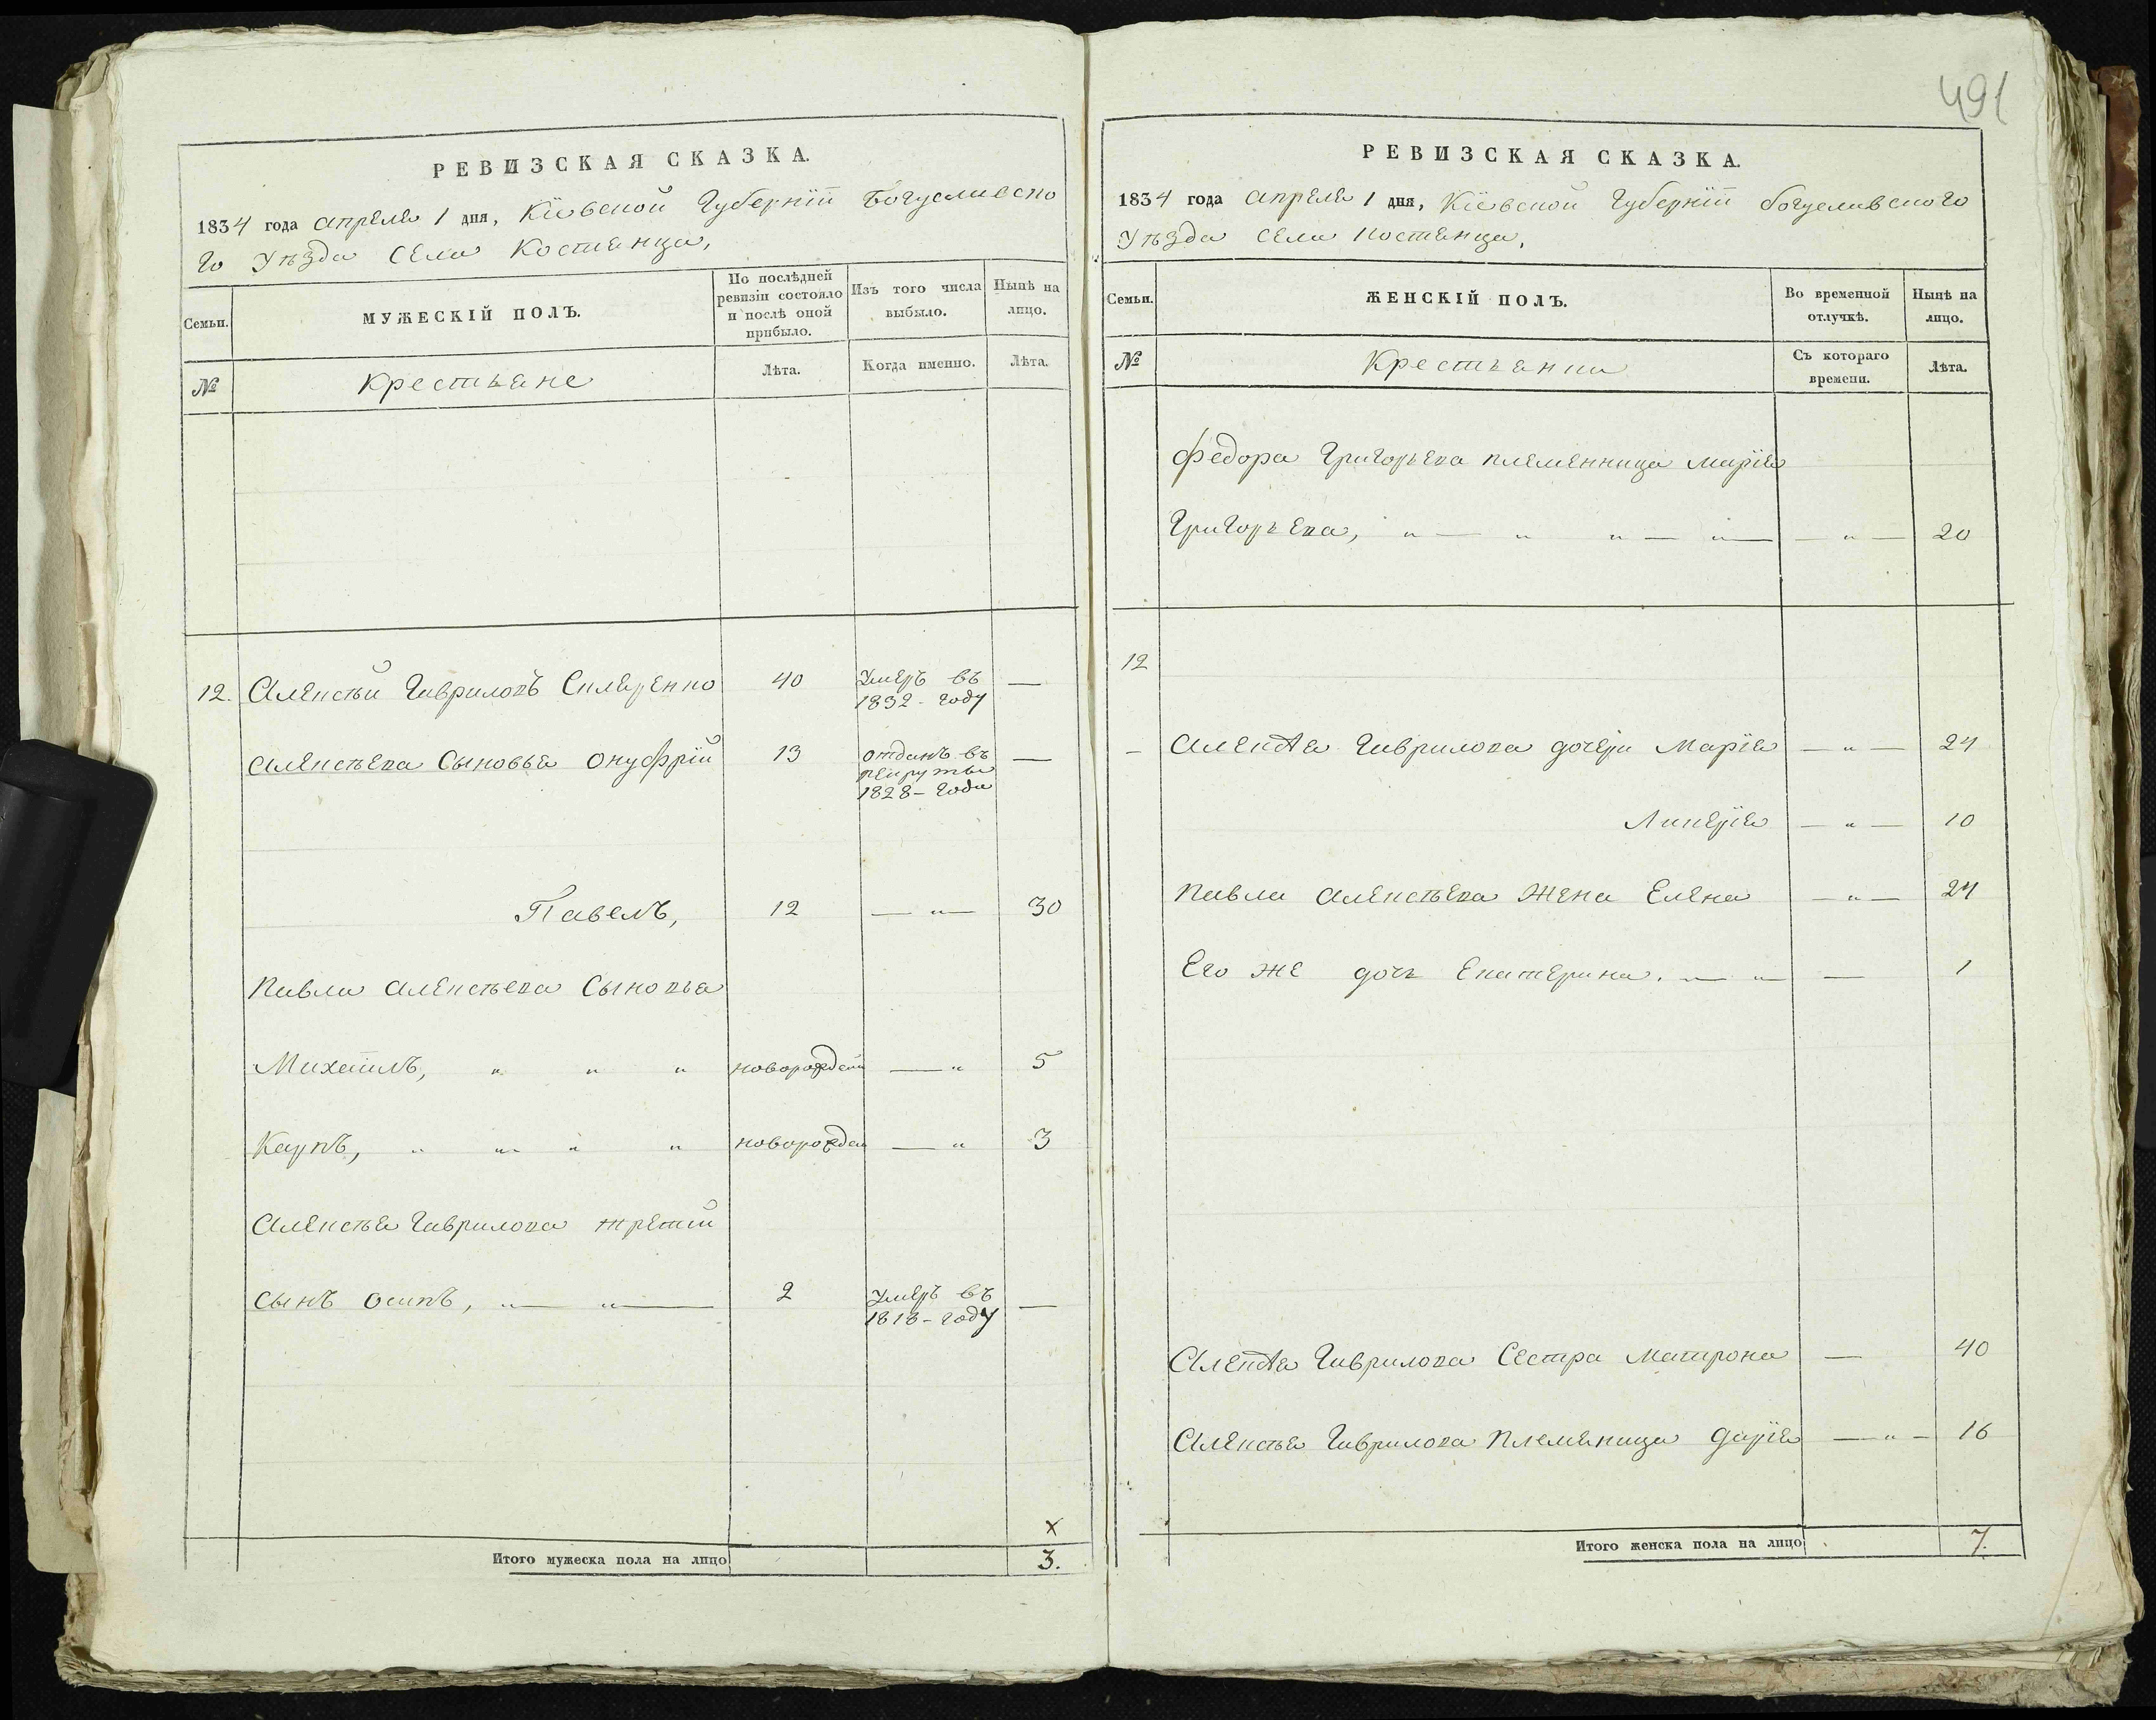 491
РЕВИЗСКАЯ СКАЗКА.
1834 года апреля 1 дня, Кіевской Губерніи Богуславско
го Уѣзда Села Костянца,
Семьи.
МУЖЕСКІЙ ПОЛЪ.
По послѣдней ревизіи состояло и послѣ оной прибыло.
Изъ того числа выбыло.
Нынѣ на лицо.
№
Крестьяне
Лѣта.
Когда именно.
Лѣта.
12. Алексѣй Гавриловъ Скляренко 40 Умеръ въ 1832 - году —
Алексѣева Сыновья Онуфрій 13 отданъ въ рекруты 1828 - года —
Павелъ, 12 — „ — 30
Павла Алексѣева Сыновья
Михаилъ, „ „ „ новорожден — „ 5
Карпъ, „ „ „ „ новорожден — „ 3
Алексѣя Гаврилова третій
сынъ Осипъ, „ — „ — 2 Умеръ въ 1818 - году —
х
Итого мужеска пола на лицо 3.
РЕВИЗСКАЯ СКАЗКА.
1834 года апреля 1 дня, Кіевской Губерніи богуславского
Уѣзда Села Костянца,
Семьи.
ЖЕНСКІЙ ПОЛЪ.
Во временной отлучкѣ.
Нынѣ на лицо.
№
Крестьянки
Съ котораго времени.
Лѣта.
Федора Григорьева племенница Марія
Григорьева, „ — „ „ — „ — — „ — 20
12
— Алексѣя Гаврилова дочери Марія — „ — 24
Ликерія — „ — 10
Павла Алексѣева Жена Елена — „ — 24
Его же дочь Екатерина. — „ — — 1
Алексѣя Гаврилова Сестра Матрона — 40
Алексѣя Гаврилова Племеница дарія — „ — 16
Итого женска пола на лицо 7.